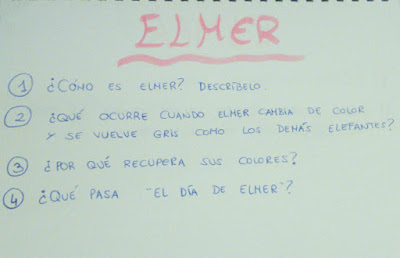 ELMER
1 ¿CÓMO ES ELMER? DESCRÍBELO.
2 ¿QUÉ OCURRE CUANDO ELMER CAMBIA DE COLOR
Y SE VUELVE GRIS COMO LOS DEMÁS ELEFANTES?
3 ¿POR QUÉ RECUPERA SUS COLORES?
4 ¿QUÉ PASA "EL DÍA DE ELMER"?